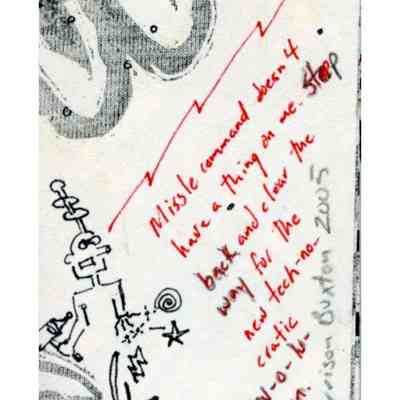 Missle command doesn4
have a thing on me. Step
back and clear the
way for the
new tech-no-
cratic
v-o-lu-
n.
Buxton 2005